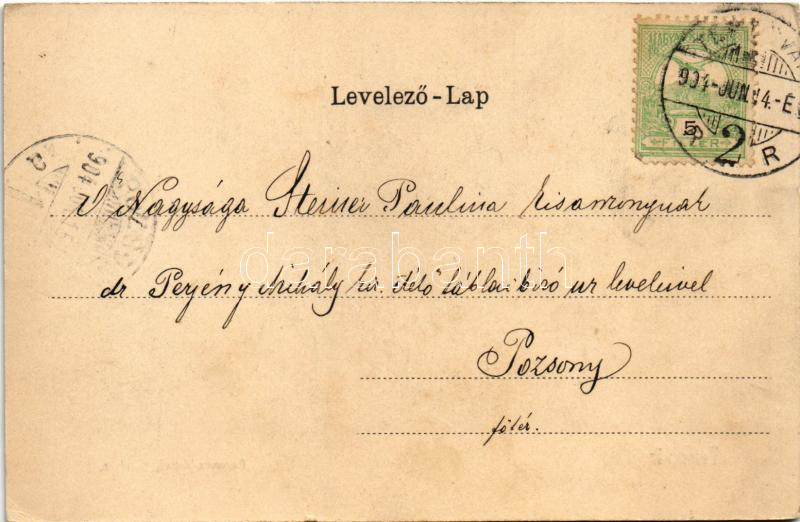 Levelező-Lap
MAGYAR
5
FILLÉR
904-JUN.14.-E
2
R
904
Ő Nagysága Steiner Paulina kisasszonynak
dr. Perjény Mihály kir. ítélő táblai bíró ur leveleivel
Pozsony
főtér.
darabanth